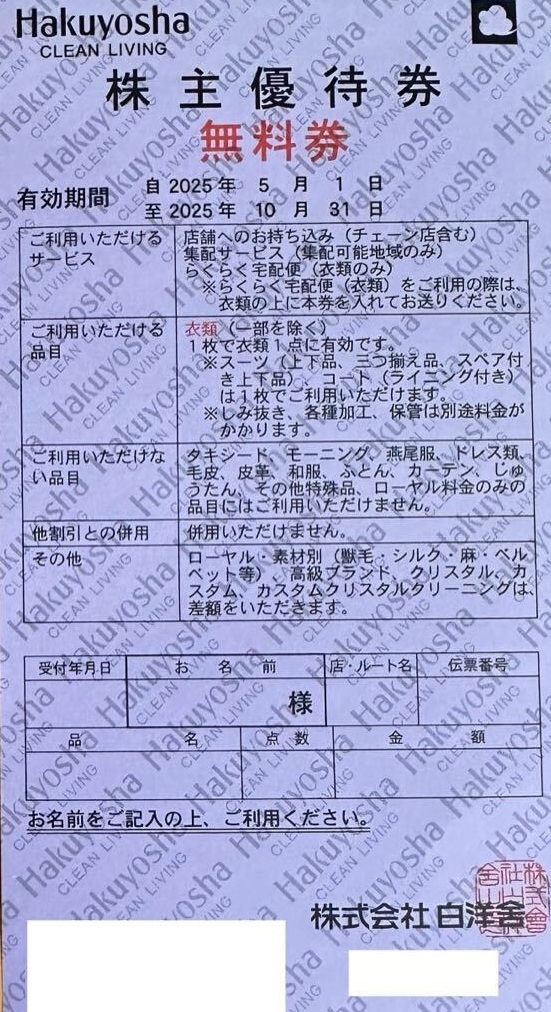 Hakuyosha
CLEAN LIVING
株主優待券
無料券
有効期間
自 2025年 5 月 1 日
至 2025年 10 月 31 日
ご利用いただける
サービス
店舗へのお持ち込み（チェーン店含む）
集配サービス（集配可能地域のみ）
らくらく宅配便（衣類のみ）
※らくらく宅配便（衣類）をご利用の際は、
衣類の上に本券を入れてお送りください。
ご利用いただける
品目
衣類（一部を除く）
1枚で衣類1点に有効です。
※スーツ（上下品、三つ揃え品、スペア付
き上下品）、コート（ライニング付き）
は1枚でご利用いただけます。
※しみ抜き、各種加工、保管は別途料金が
かかります。
ご利用いただけな
い品目
タキシード、モーニング、燕尾服、ドレス類、
毛皮、皮革、和服、ふとん、カーテン、じゅ
うたん、その他特殊品、ローヤル料金のみの
品目にはご利用いただけません。
他割引との併用
併用いただけません。
その他
ローヤル・素材別（獣毛・シルク・麻・ベル
ベット等）、高級ブランド、クリスタル、カ
スタム、カスタムクリスタルクリーニングは、
差額をいただきます。
受付年月日
お名前
店・ルート名
伝票番号
様
品名
点数
金額
お名前をご記入の上、ご利用ください。
株式会社 白洋舎